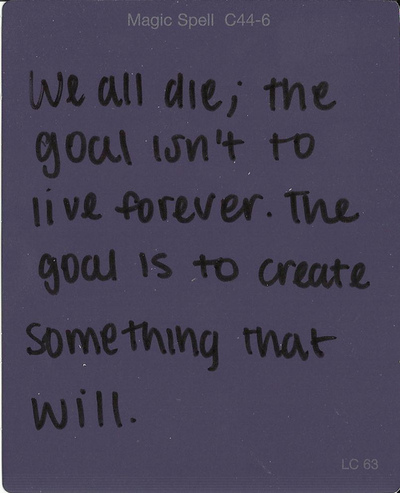 Magic Spell C44-6
We all die; the
goal isn't to
live forever. The
goal is to create
something that
will.
LC 63